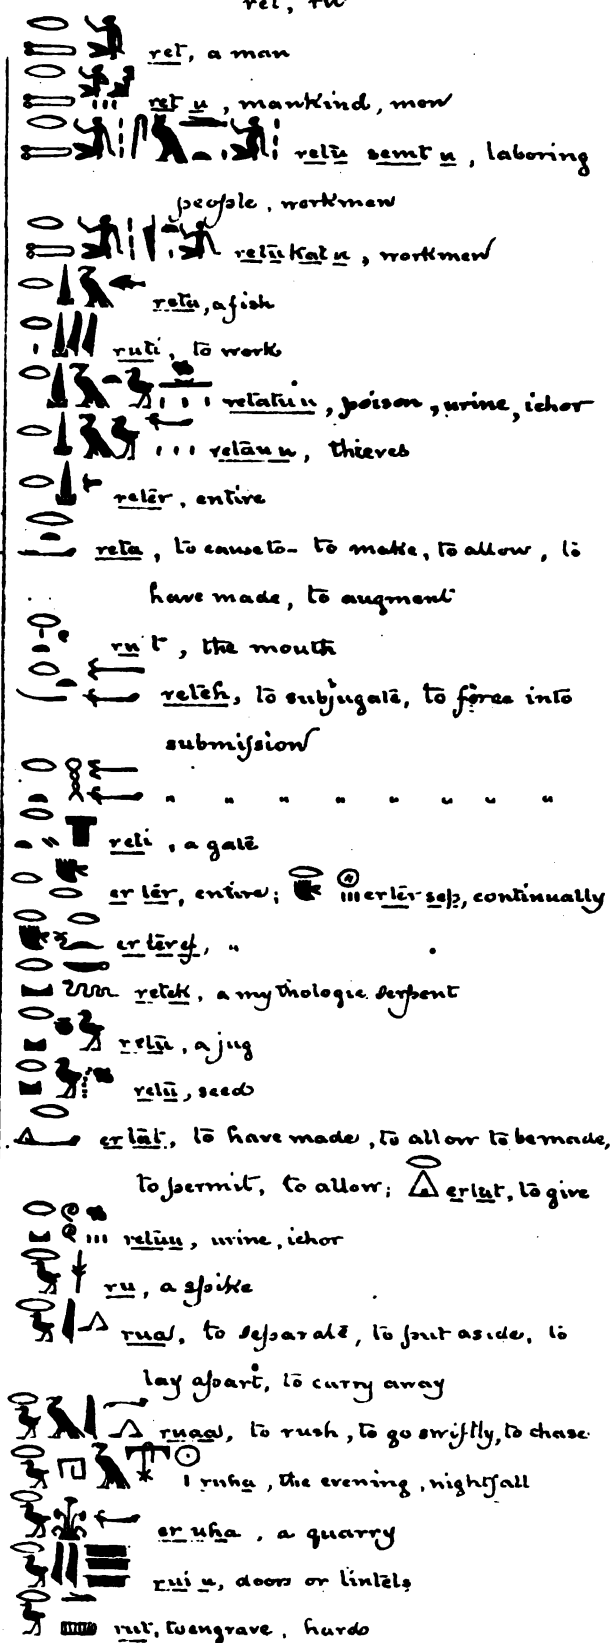 ret, ru
ret, a man
ret u, mankind, men
retū semt u, laboring
people, workmen
retū kat u, workmen
reta, a fish
ruti, to work
retatu u, poison, urine, ichor
retāu u, thieves
retér, entire
reta, to cause to- to make, to allow, to
have made, to augment
ru t, the mouth
reteh, to subjugate, to force into
submission
" " " " " " " "
reti, a gate
er tér, entire; er tér sep, continually
er téref, "
retek, a mythologic serpent
retū, a jug
retū, seed
er tāt, to have made, to allow to be made,
to permit, to allow; er tut, to give
retūu, urine, ichor
ru, a spike
rua, to separate, to put aside, to
lay apart, to carry away
ruaa, to rush, to go swiftly, to chase
ruha, the evening, nightfall
er uha, a quarry
rui u, doors or lintels
rut, to engrave, hard